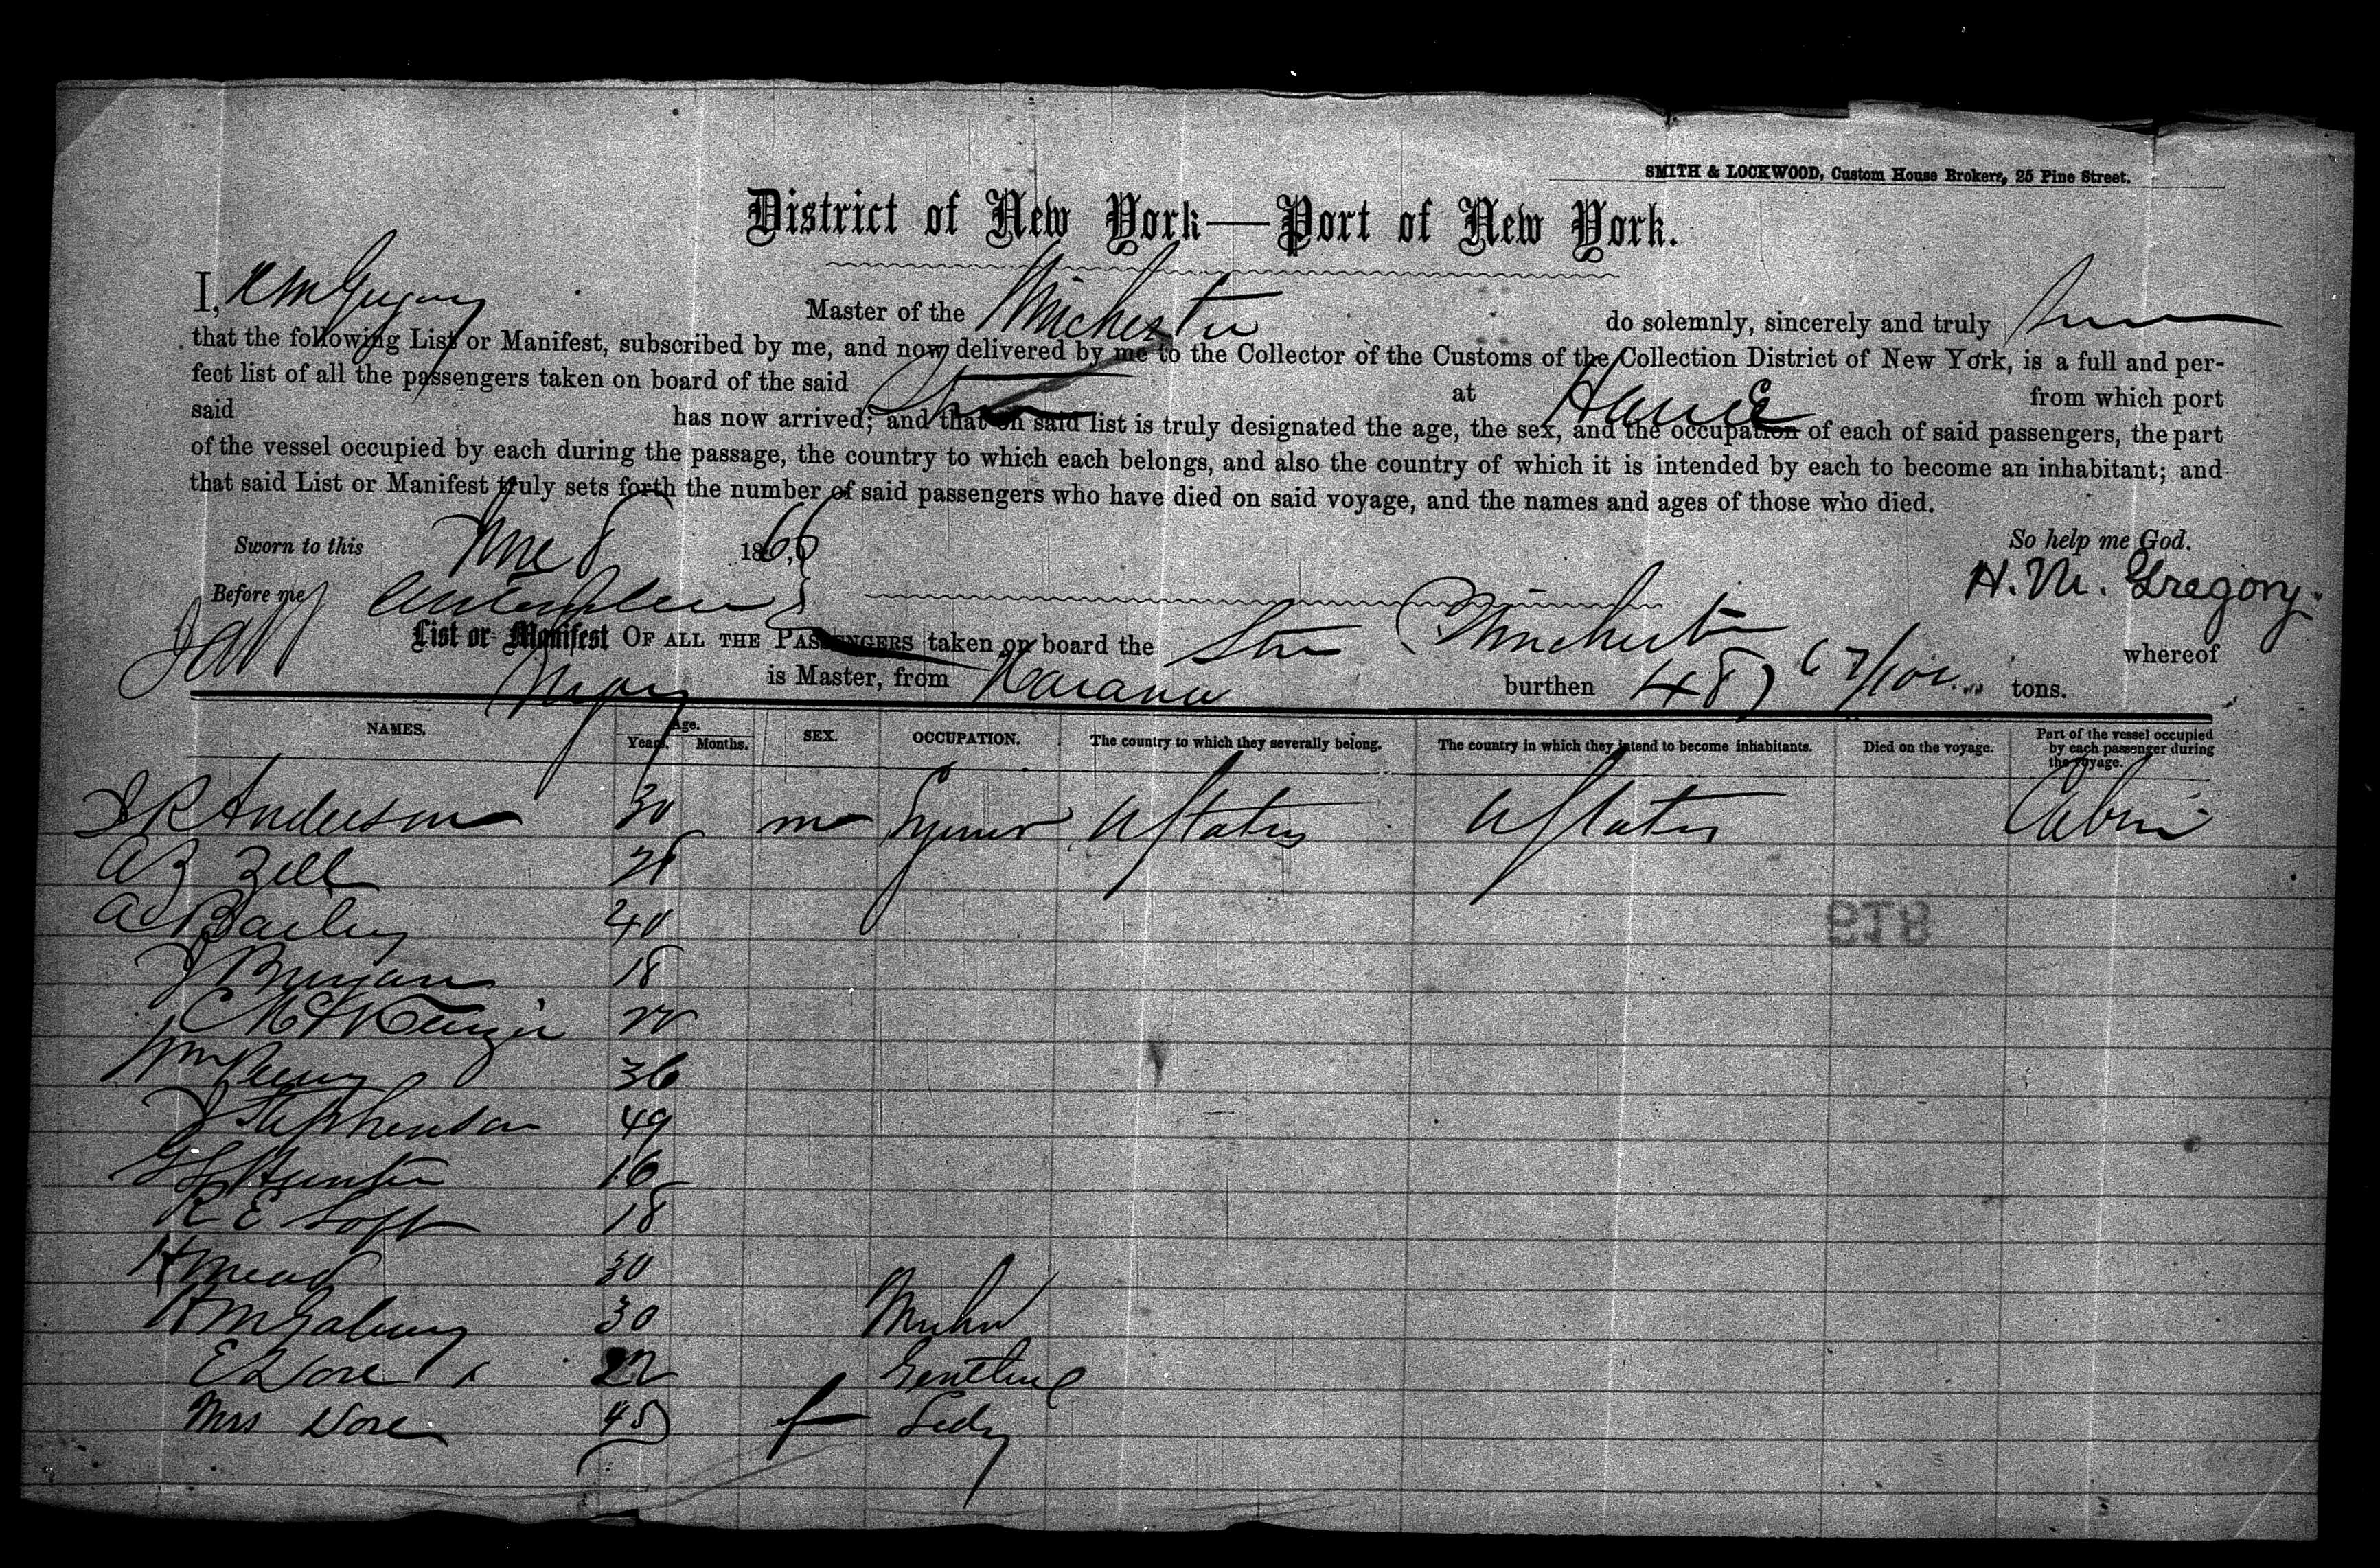 SMITH & LOCKWOOD, Custom House Brokers, 25 Pine Street.
District of New York—Port of New York.
I, H M Gregory Master of the Winchester do solemnly, sincerely and truly swear
that the following List or Manifest, subscribed by me, and now delivered by me to the Collector of the Customs of the Collection District of New York, is a full and per-
fect list of all the passengers taken on board of the said Str at Havana from which port
said has now arrived; and that on said list is truly designated the age, the sex, and the occupation of each of said passengers, the part
of the vessel occupied by each during the passage, the country to which each belongs, and also the country of which it is intended by each to become an inhabitant; and
that said List or Manifest truly sets forth the number of said passengers who have died on said voyage, and the names and ages of those who died.
Sworn to this June 8 1866 So help me God.
Before me H. M. Gregory.
List or Manifest OF ALL THE PASSENGERS taken on board the Str Winchester whereof
Gregory is Master, from Havana burthen 487 67/100 tons.
NAMES. Age. Years. Months. SEX. OCCUPATION. The country to which they severally belong. The country in which they intend to become inhabitants. Died on the voyage. Part of the vessel occupied by each passenger during the voyage.
J R Anderson 30 m U States U States Cabin
Zell
A Bailey 40
J 18
McKenzie
Wm 36
J Stephenson 49
Hunter 16
R E Loft 18
H Mead 30
H M 30
E Dore 22
Mrs Dore 45 f Lady
819